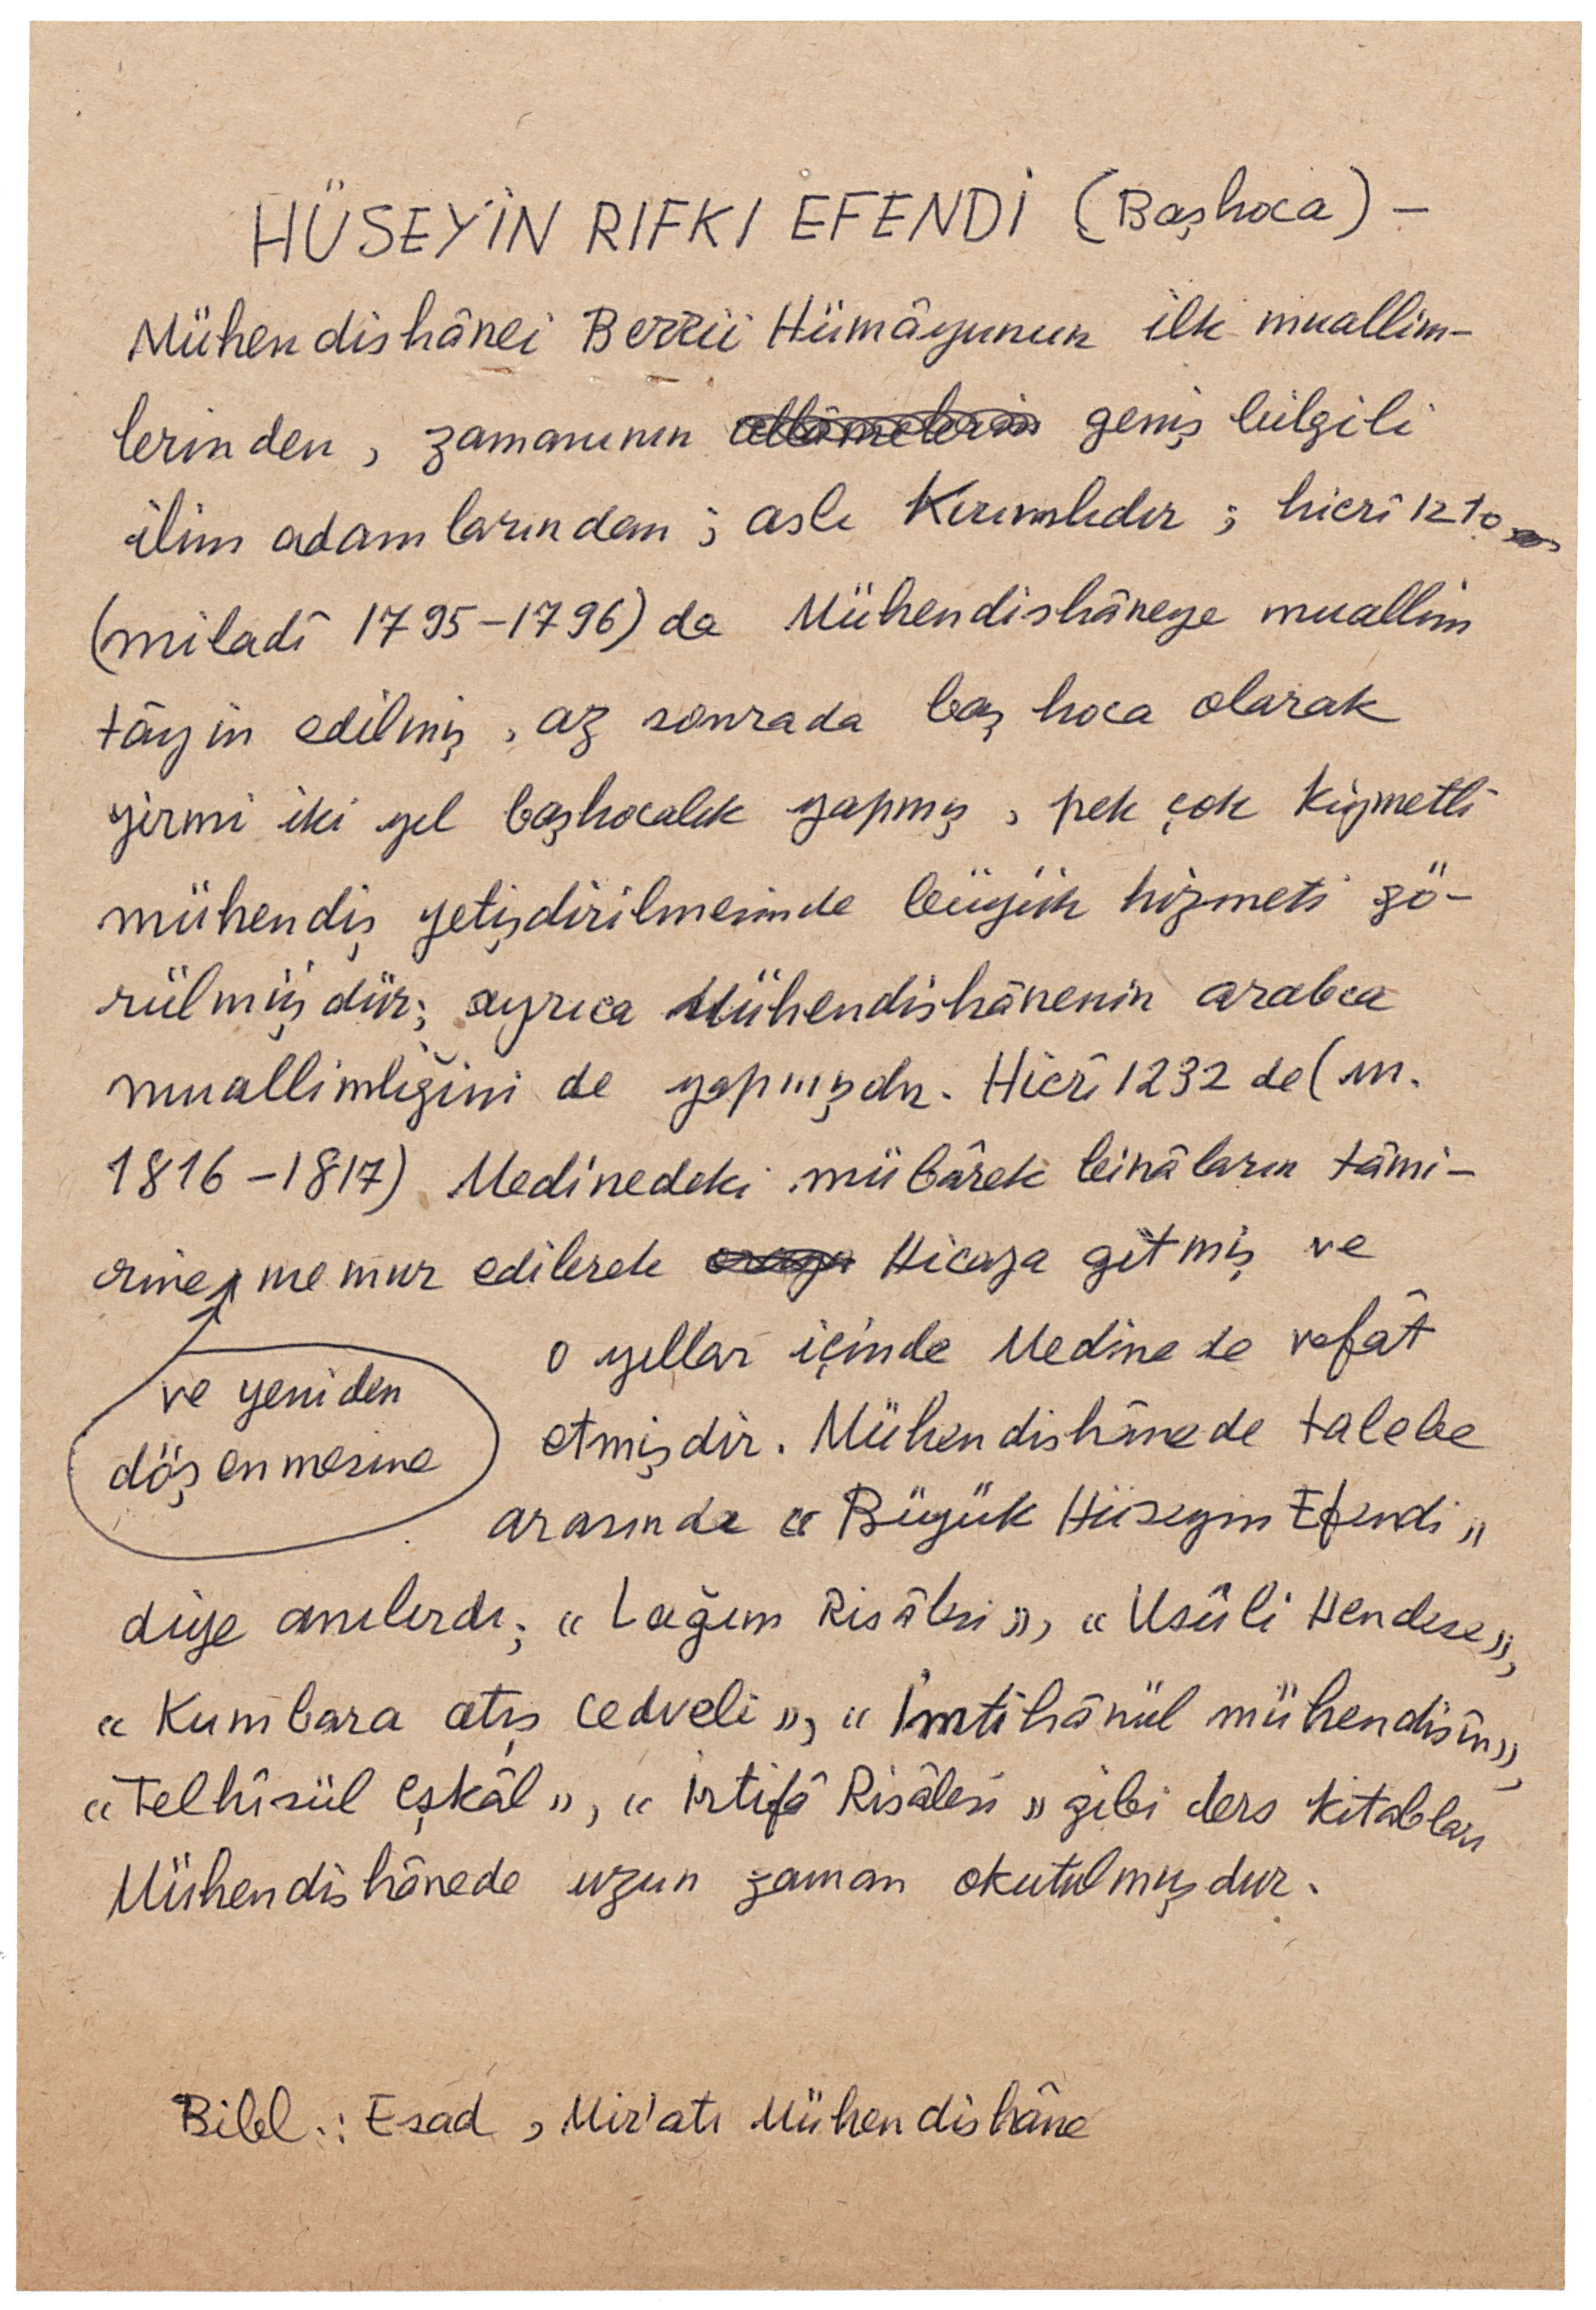 HÜSEYİN RIFKI EFENDİ (Başhoca) –
Mühendishânei Berrii Hümâyunun ilk muallim-
lerinden, zamanının allâmelerin geniş bilgili
ilim adamlarından; aslı Kırımlıdır; hicrî 1210
(miladî 1795–1796) da Mühendishâneye muallim
tâyin edilmiş, az sonrada baş hoca olarak
yirmi iki yıl başhocalık yapmış, pek çok kiymetli
mühendiş yetişdirilmesinde büyük hizmeti gö-
rülmüşdür; ayrıca Mühendishânenin arabca
muallimliğini de yapmışdır. Hicrî 1232 de (m.
1816–1817) Medinedeki mübârek binâların tâmi-
rine memur edilerek oraya Hicaza gitmiş ve
ve yeniden
döşenmesine
o yıllar içinde Medinede vefât
etmişdir. Mühendishânede talebe
arasında « Büyük Hüseyin Efendi »
diye anılırdı; « Lağım Risâlesi », « Usûli Hendese »,
« Kumbara atış cedveli », « İmtihânül mühendisîn »,
« Telhîsül eşkâl », « İrtifâ Risâlesi » gibi ders kitabları
Mühendishânede uzun zaman okutulmuşdur.
Bibl.: Esad, Mir'atı Mühendishâne